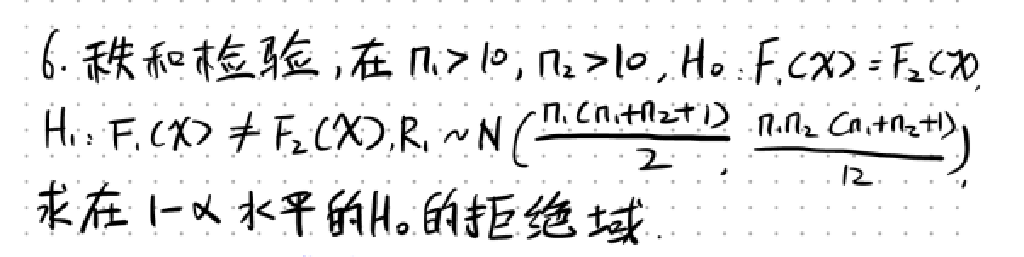 6. 秩和检验,在 n₁>10, n₂>10, H₀: F₁(X)=F₂(X),
H₁: F₁(X) ≠ F₂(X), R₁ ~ N(n₁(n₁+n₂+1)/2, n₁n₂(n₁+n₂+1)/12),
求在 1-α 水平的H₀的拒绝域.